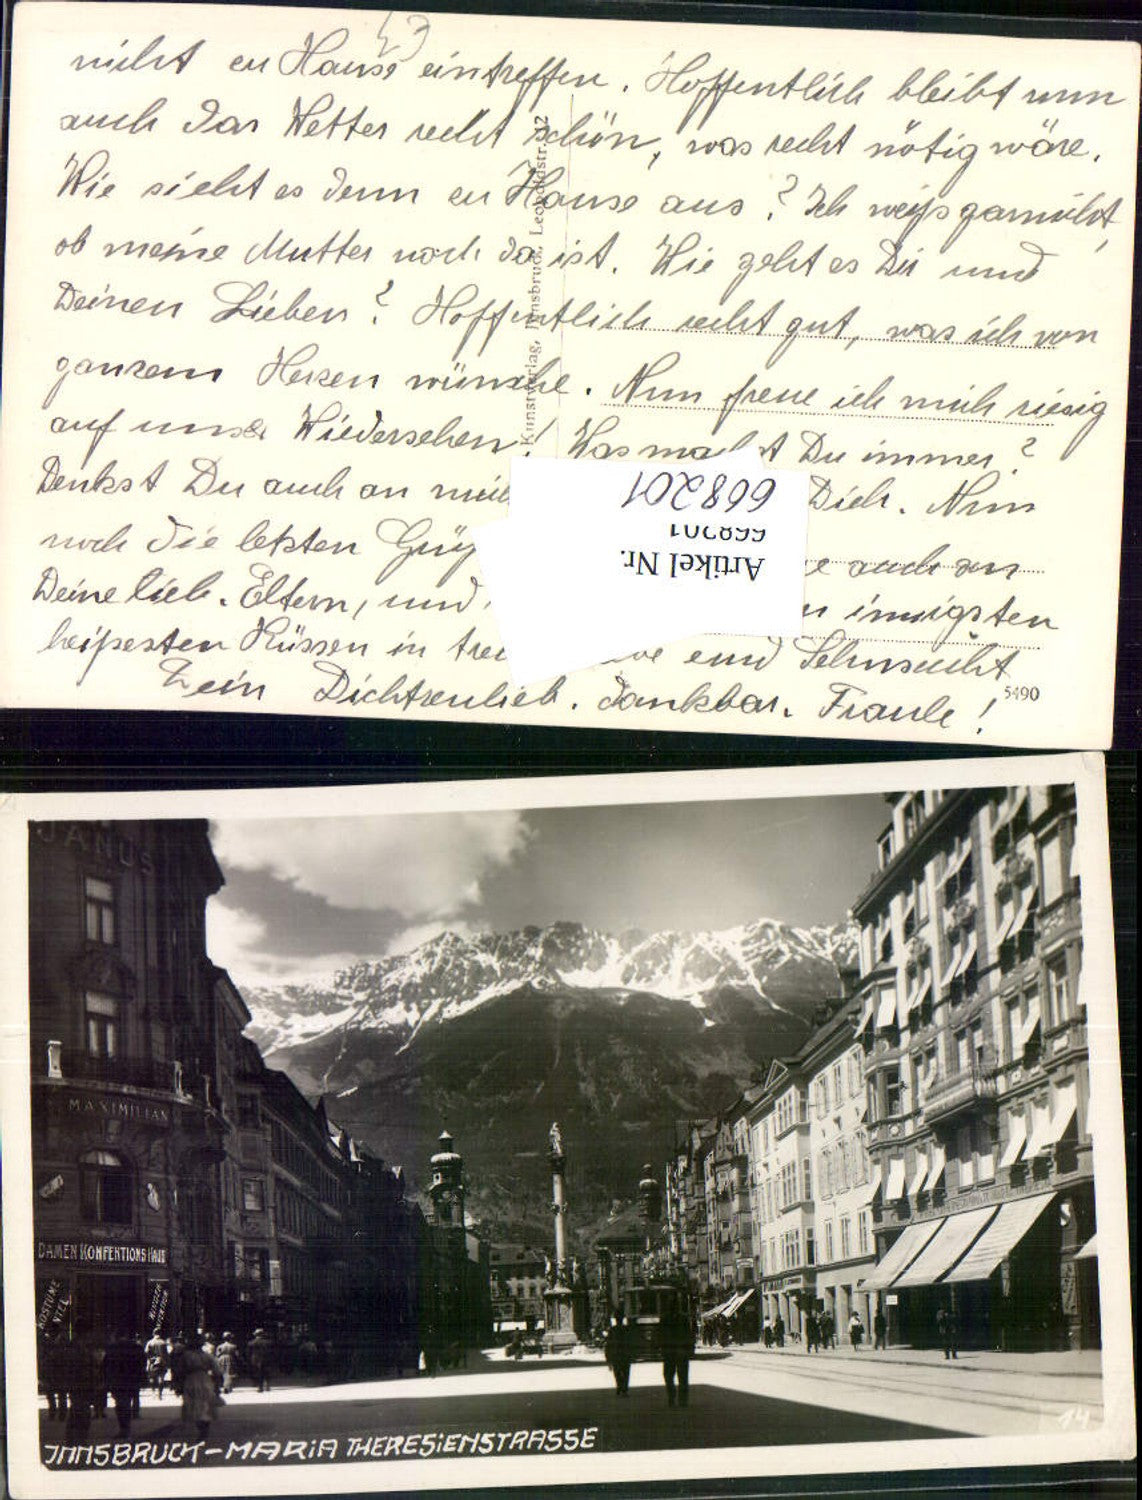 nicht zu Hause eintreffen. Hoffentlich bleibt nun
auch das Wetter recht schön, was recht nötig wäre.
Wie sieht es denn zu Hause aus? Ich weiß garnicht,
ob meine Mutter noch da ist. Wie geht es Dir und
Deinen Lieben? Hoffentlich recht gut, was ich von
ganzem Herzen wünsche. Nun freue ich mich riesig
auf unser Wiedersehen! Was machst Du immer?
Denkst Du auch an mich Dich. Nun
noch die letzten Grüße auch an
Deine lieb. Eltern, und innigsten
heißesten Küssen in und Sehnsucht
Dein Dich lieb. dankbar.
Kunstverlag, Innsbruck, Leopoldstr. 12
5490
Artikel Nr.
668201
668201
JANUS
MAXIMILIAN
DAMEN KONFEKTIONS HAUS
KOSTÜME
INNSBRUCK-MARIA THERESIENSTRASSE
14